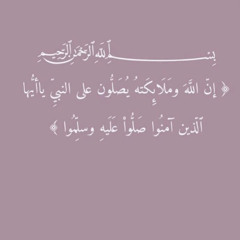 بِسْمِ اللهِ الرَّحْمَنِ الرَّحِيمِ
﴿ إِنَّ اللَّهَ وَمَلَائِكَتَهُ يُصَلُّونَ على النبيِّ ياأيُّها
الَّذين آمنُوا صَلُّوا عَلَيهِ وسلِّمُوا ﴾